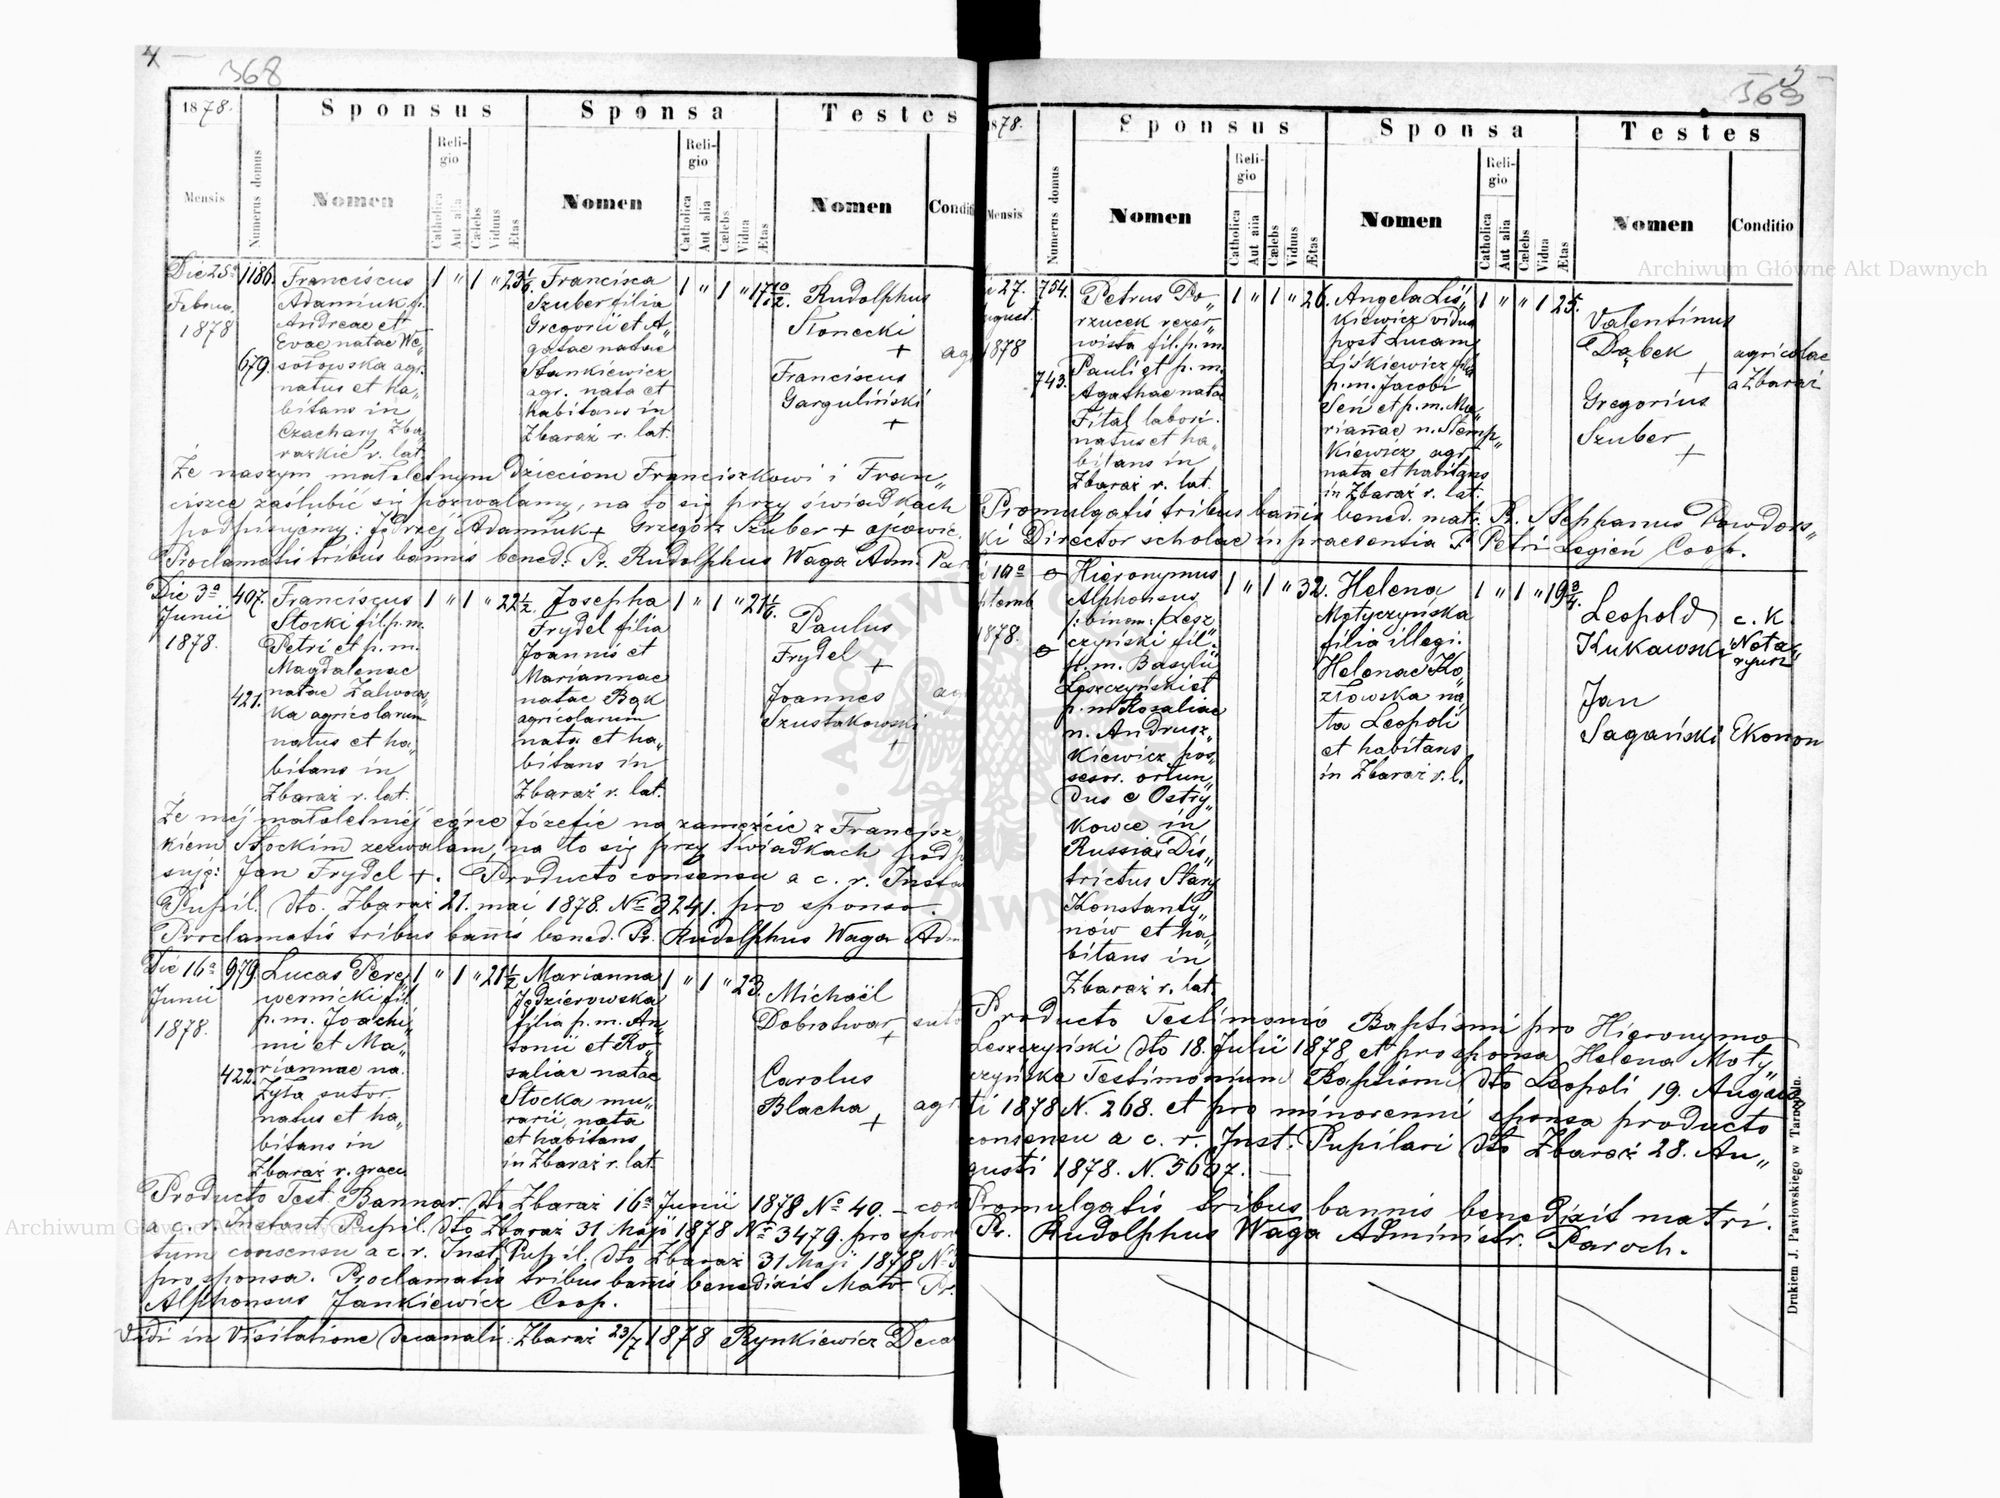 4
368
1878.
Sponsus
Sponsa
Testes
Mensis
Numerus domus
Nomen
Religio
Catholica
Aut alia
Cælebs
Viduus
Ætas
Nomen
Religio
Catholica
Aut alia
Cælebs
Vidua
Ætas
Nomen
Conditi
Die 25a
Februa.
1878
1186.
679.
Franciscus
Adamiuk f.
Andreae et
Evae natae We„
sołowska agr.
natus et ha„
bitans in
Czachary Zba„
razkie r. lat.
1 " 1 " 23 1/6
Francisca
Szuber filia
Gregorii et A„
gatae natae
Stankiewicz
agr. nata et
habitans in
Zbaraż r. lat.
1 " 1 " 17 10/12.
Rudolphus
Słonecki
+
Franciscus
Garguliński
+
agr
Że naszym małoletnym dzieciom Franciszkowi i Fran„
ciszce zaślubić się pozwalamy, na to się przy świadkach
podpisujemy: Jędrzej Adamiuk + Grzegorz Szuber + ojcowie.
Proclamatis tribus bannis bened: Pr. Rudolphus Waga Adm. Par
Die 3a
Junii
1878.
407.
421.
Franciscus
Stocki fil. p. m.
Petri et p. m.
Magdalenae
natae Zalwows„
ka agricolarum
natus et ha„
bitans in
Zbaraż r. lat.
1 " 1 " 22 1/2.
Josepha
Frydel filia
Joannis et
Mariannae
natae Bąk
agricolarum
nata et ha„
bitans in
Zbaraż r. lat.
1 " 1 " 21 1/6.
Paulus
Frydel
+
Joannes
Szustakowski
+
ag
Że mej małoletniej córce Józefie na zamęźcie z Francisz„
kiem Stockim zezwalam, na to się przy świadkach podp
suję: Jan Frydel +. Producto consensu a c. r. Insta
Pupil. dto. Zbaraż 21. mai 1878. No 3241. pro sponso.
Proclamatis tribus bannis bened. Pr. Rudolphus Waga Adm
Die 16a
Junii
1878.
979.
422.
Lucas Pere„
wernicki fil.
p. m. Joachi„
mi et Ma„
riannae na.
Zyła sutor.
natus et ha„
bitans in
Zbaraż r. graec.
1 " 1 " 21 1/2
Marianna
Jędzierowska
filia p. m. An„
tonii et Ro„
saliae natae
Stocka mu„
rarii, nata
et habitans
in Zbaraż r. lat.
1 " 1 " 23.
Michaël
Dobrotwor
+
Carolus
Blacha
+
suto
agr
Producto Test. Bannar. dto Zbaraż 16a Junii 1878 No 40. – con
a c. r. Instant. Pupil. dto Zbaraż 31 Maji 1878 No 3479. pro spon
tum consensu a c. r. Inst. Pupil. dto Zbaraż 31 Maji 1878 No 3
pro sponsa. Proclamatis tribus bannis benedixit Matr. Pr.
Alphonsus Jankiewicz Coop.
Vidi in Visitatione decanali: Zbaraż 23/7 1878 Rynkiewicz Deca
5
369
1878.
Sponsus
Sponsa
Testes
Mensis
Numerus domus
Nomen
Religio
Catholica
Aut alia
Cælebs
Viduus
Ætas
Nomen
Religio
Catholica
Aut alia
Cælebs
Vidua
Ætas
Nomen
Conditio
27.
ugust.
1878
754.
743.
Petrus Po„
rzucek rezer„
wista fil. p. m.
Pauli et p. m.
Agathae natae
Fital labori.
natus et ha„
bitans in
Zbaraż r. lat.
1 " 1 " 26.
Angela Liś„
kiewicz vidua
post Lucam
Liśkiewicz filia
p. m. Jacobi
Seń et p. m. Ma„
riannae n. Stemp„
kiewicz agr.
nata et habitans
in Zbaraż r. lat.
1 " " 1 25.
Valentinus
Dąbek
+
Gregorius
Szuber
+
agricolae
a Zbaraż
Promulgatis tribus bannis bened. matr. Pr. Stephanus Dowdors„
ki Director scholae in praesentia P. Petri Legień Coop.
10a
ptemb
1878.
Hieronymus
Alphonsus
/: binom: / Lesz„
czyński fil.
p. m. Basylii
Leszczyński et
p. m. Rosaliae
n. Andrusz„
kiewicz, pos„
sesor. oriun„
dus e Ostry„
kowce in
Russia Dis„
trictus Stary
Konstanty„
nów et ha„
bitans in
Zbaraż r. lat.
1 " 1 " 32.
Helena
Motyczyńska
filia illegi.
Helenae Ko„
złowska na„
ta Leopoli
et habitans
in Zbaraż r. l.
1 " 1 " 19 3/4.
Leopold
Kukawski
Jan
Sagański
c. k.
Nota„
ryusz
Ekonom
Producto Testimonio Baptismi pro Hieronymo
Leszczyński dto 18. Julii 1878, et pro sponsa Helena Moty„
czyńska Testimonium Baptismi dto Leopoli, 19. Augus„
ti 1878 N. 268. et pro minorenni sponsa producto
consensu a c. r. Inst. Pupilari dto Zbaraż 28. Au„
gusti 1878. N. 5607. –
Promulgatis tribus bannis benedixit matri.
Pr. Rudolphus Waga Administr. Paroch.
Drukiem J. Pawłowskiego w Tarnopolu.
Archiwum Główne Akt Dawnych
Archiwum Główne Akt Dawnych